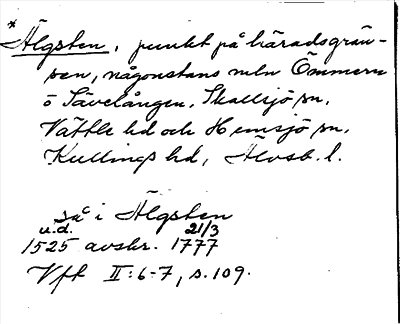 * Älgsten, punkt på häradsgrän-
sen, någonstans mln Ömmern
o Sävelången, Skallsjö sn,
Vättle hd och Hemsjö sn,
Kullings hd, Älvsb. l.
så i Älgsten
u.d. 21/3
1525 avskr. 1777
Vff II:6-7, s. 109.